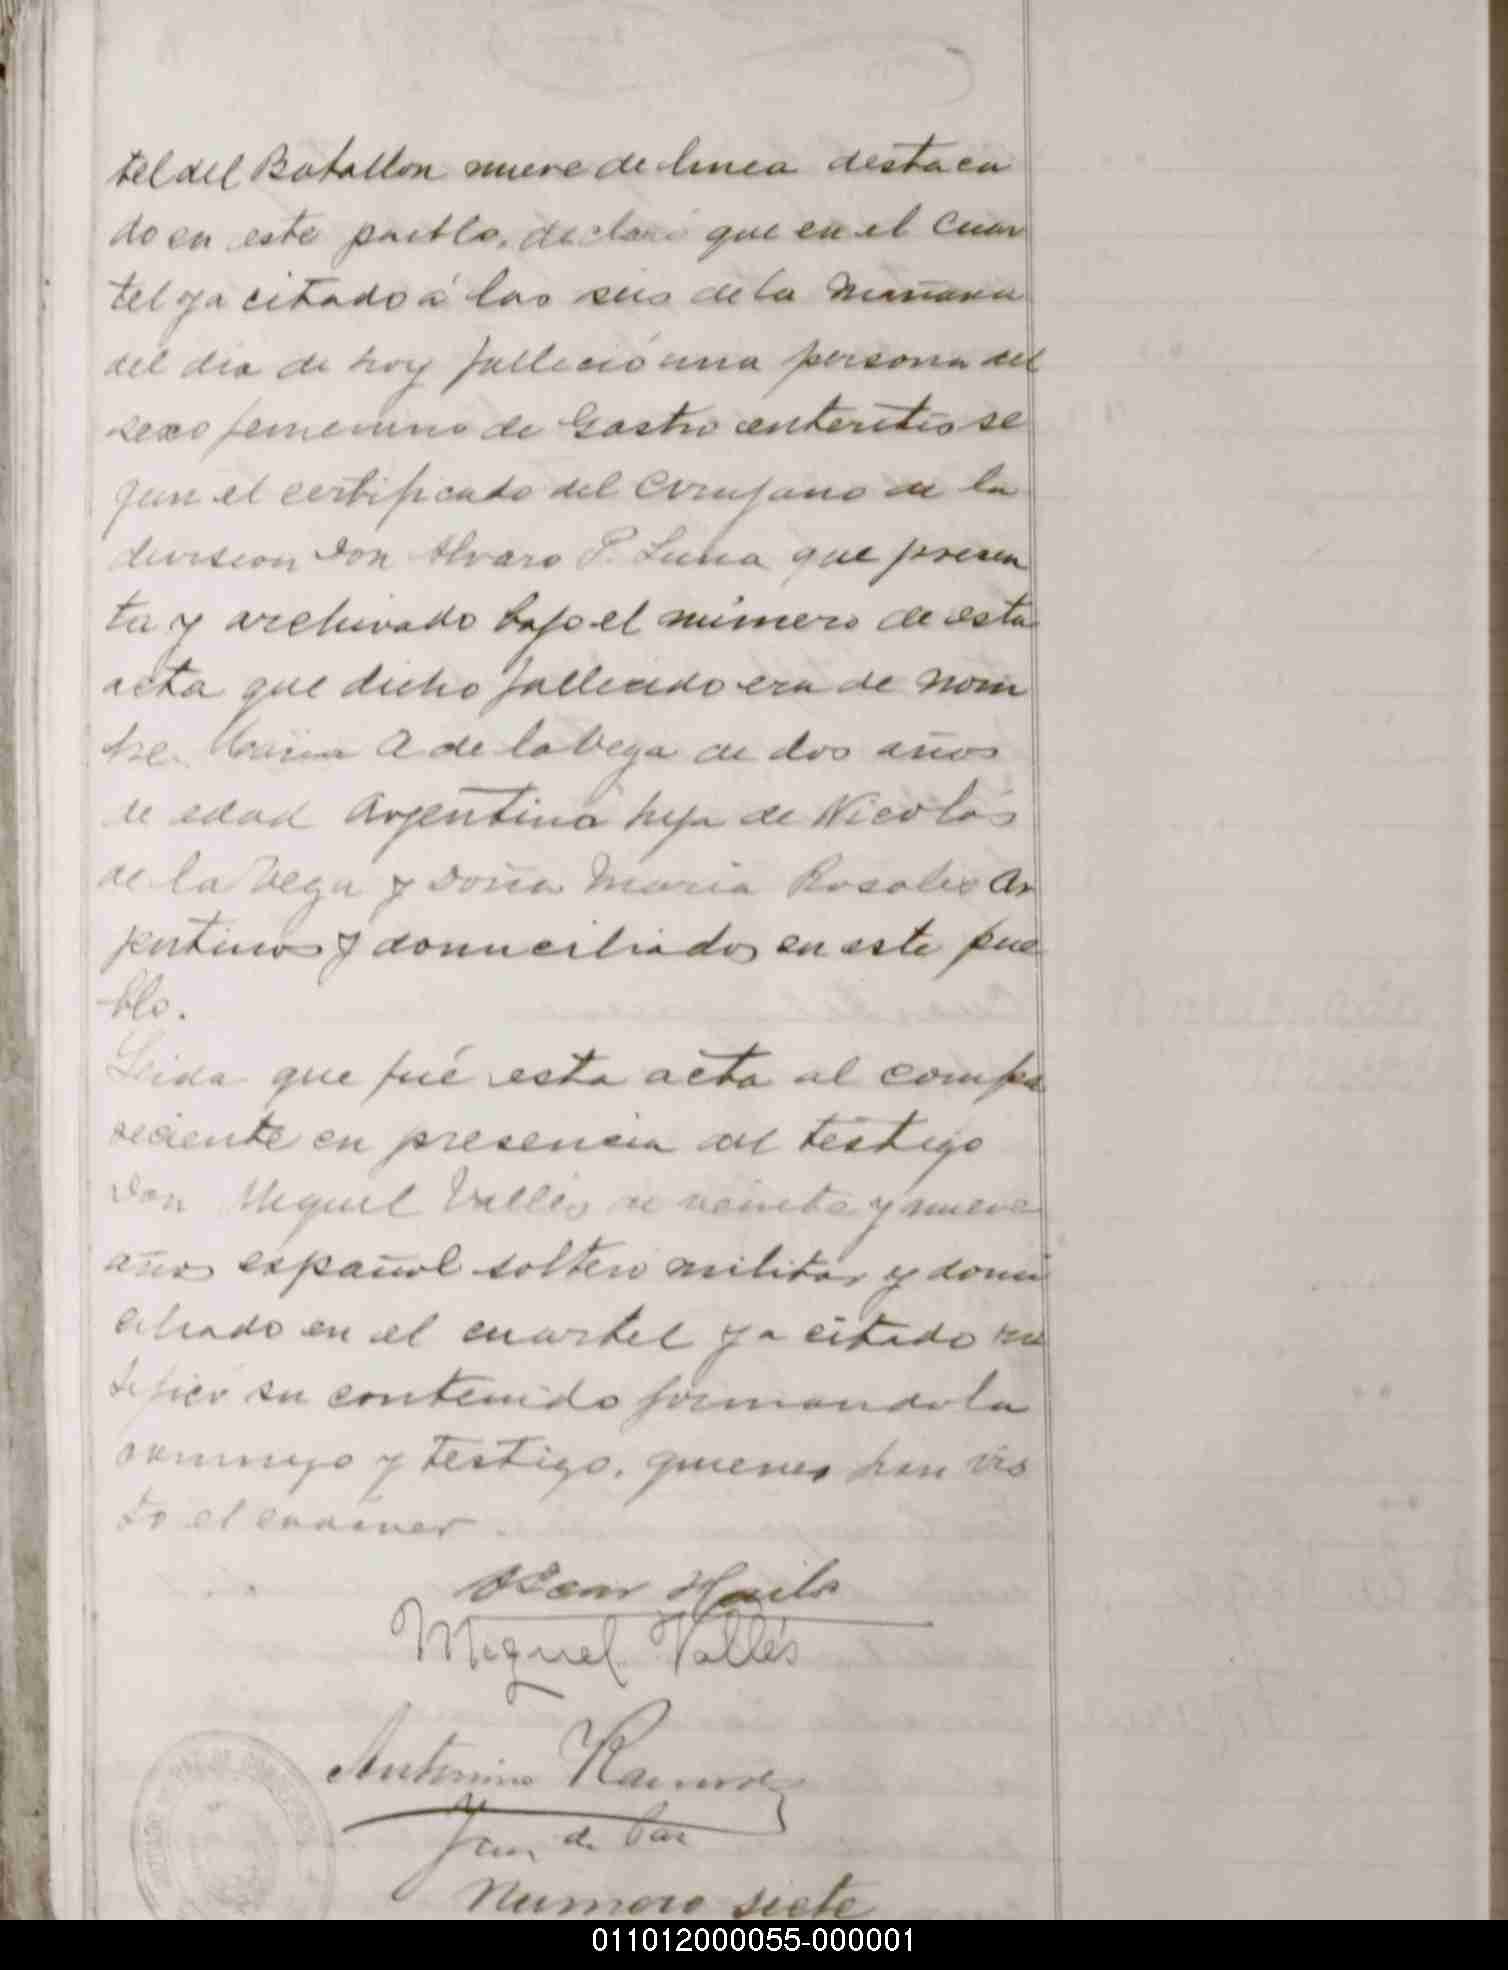 tel del Batallon nueve de linea destaca
do en este pueblo, declaró que en el Cuar
tel ya citado á las seis de la mañana
del dia de hoy falleció una persona del
sexo femenino de Gastro enteritis se
gun el certificado del Cirujano de la
division Don Alvaro P. Luna que presen
ta y archivado bajo el número de esta
acta que dicho fallecido era de nom
bre Maria A de la Vega de dos años
de edad Argentina hija de Nicolás
de la Vega y Doña Maria Rosales Ar
jentinos y domiciliados en este pue
blo.
Leida que fué esta acta al compa
reciente en presencia del testigo
Don Miguel Vallés de veinte y nueve
años español soltero militar y domi
ciliado en el cuartel ya citado ra
tificó su contenido firmandola
conmigo y testigo, quienes han vis
to el cadáver
Oscar
Miguel Vallés
Antonino Ramirez
Juez de Paz
Numero siete
011012000055-000001